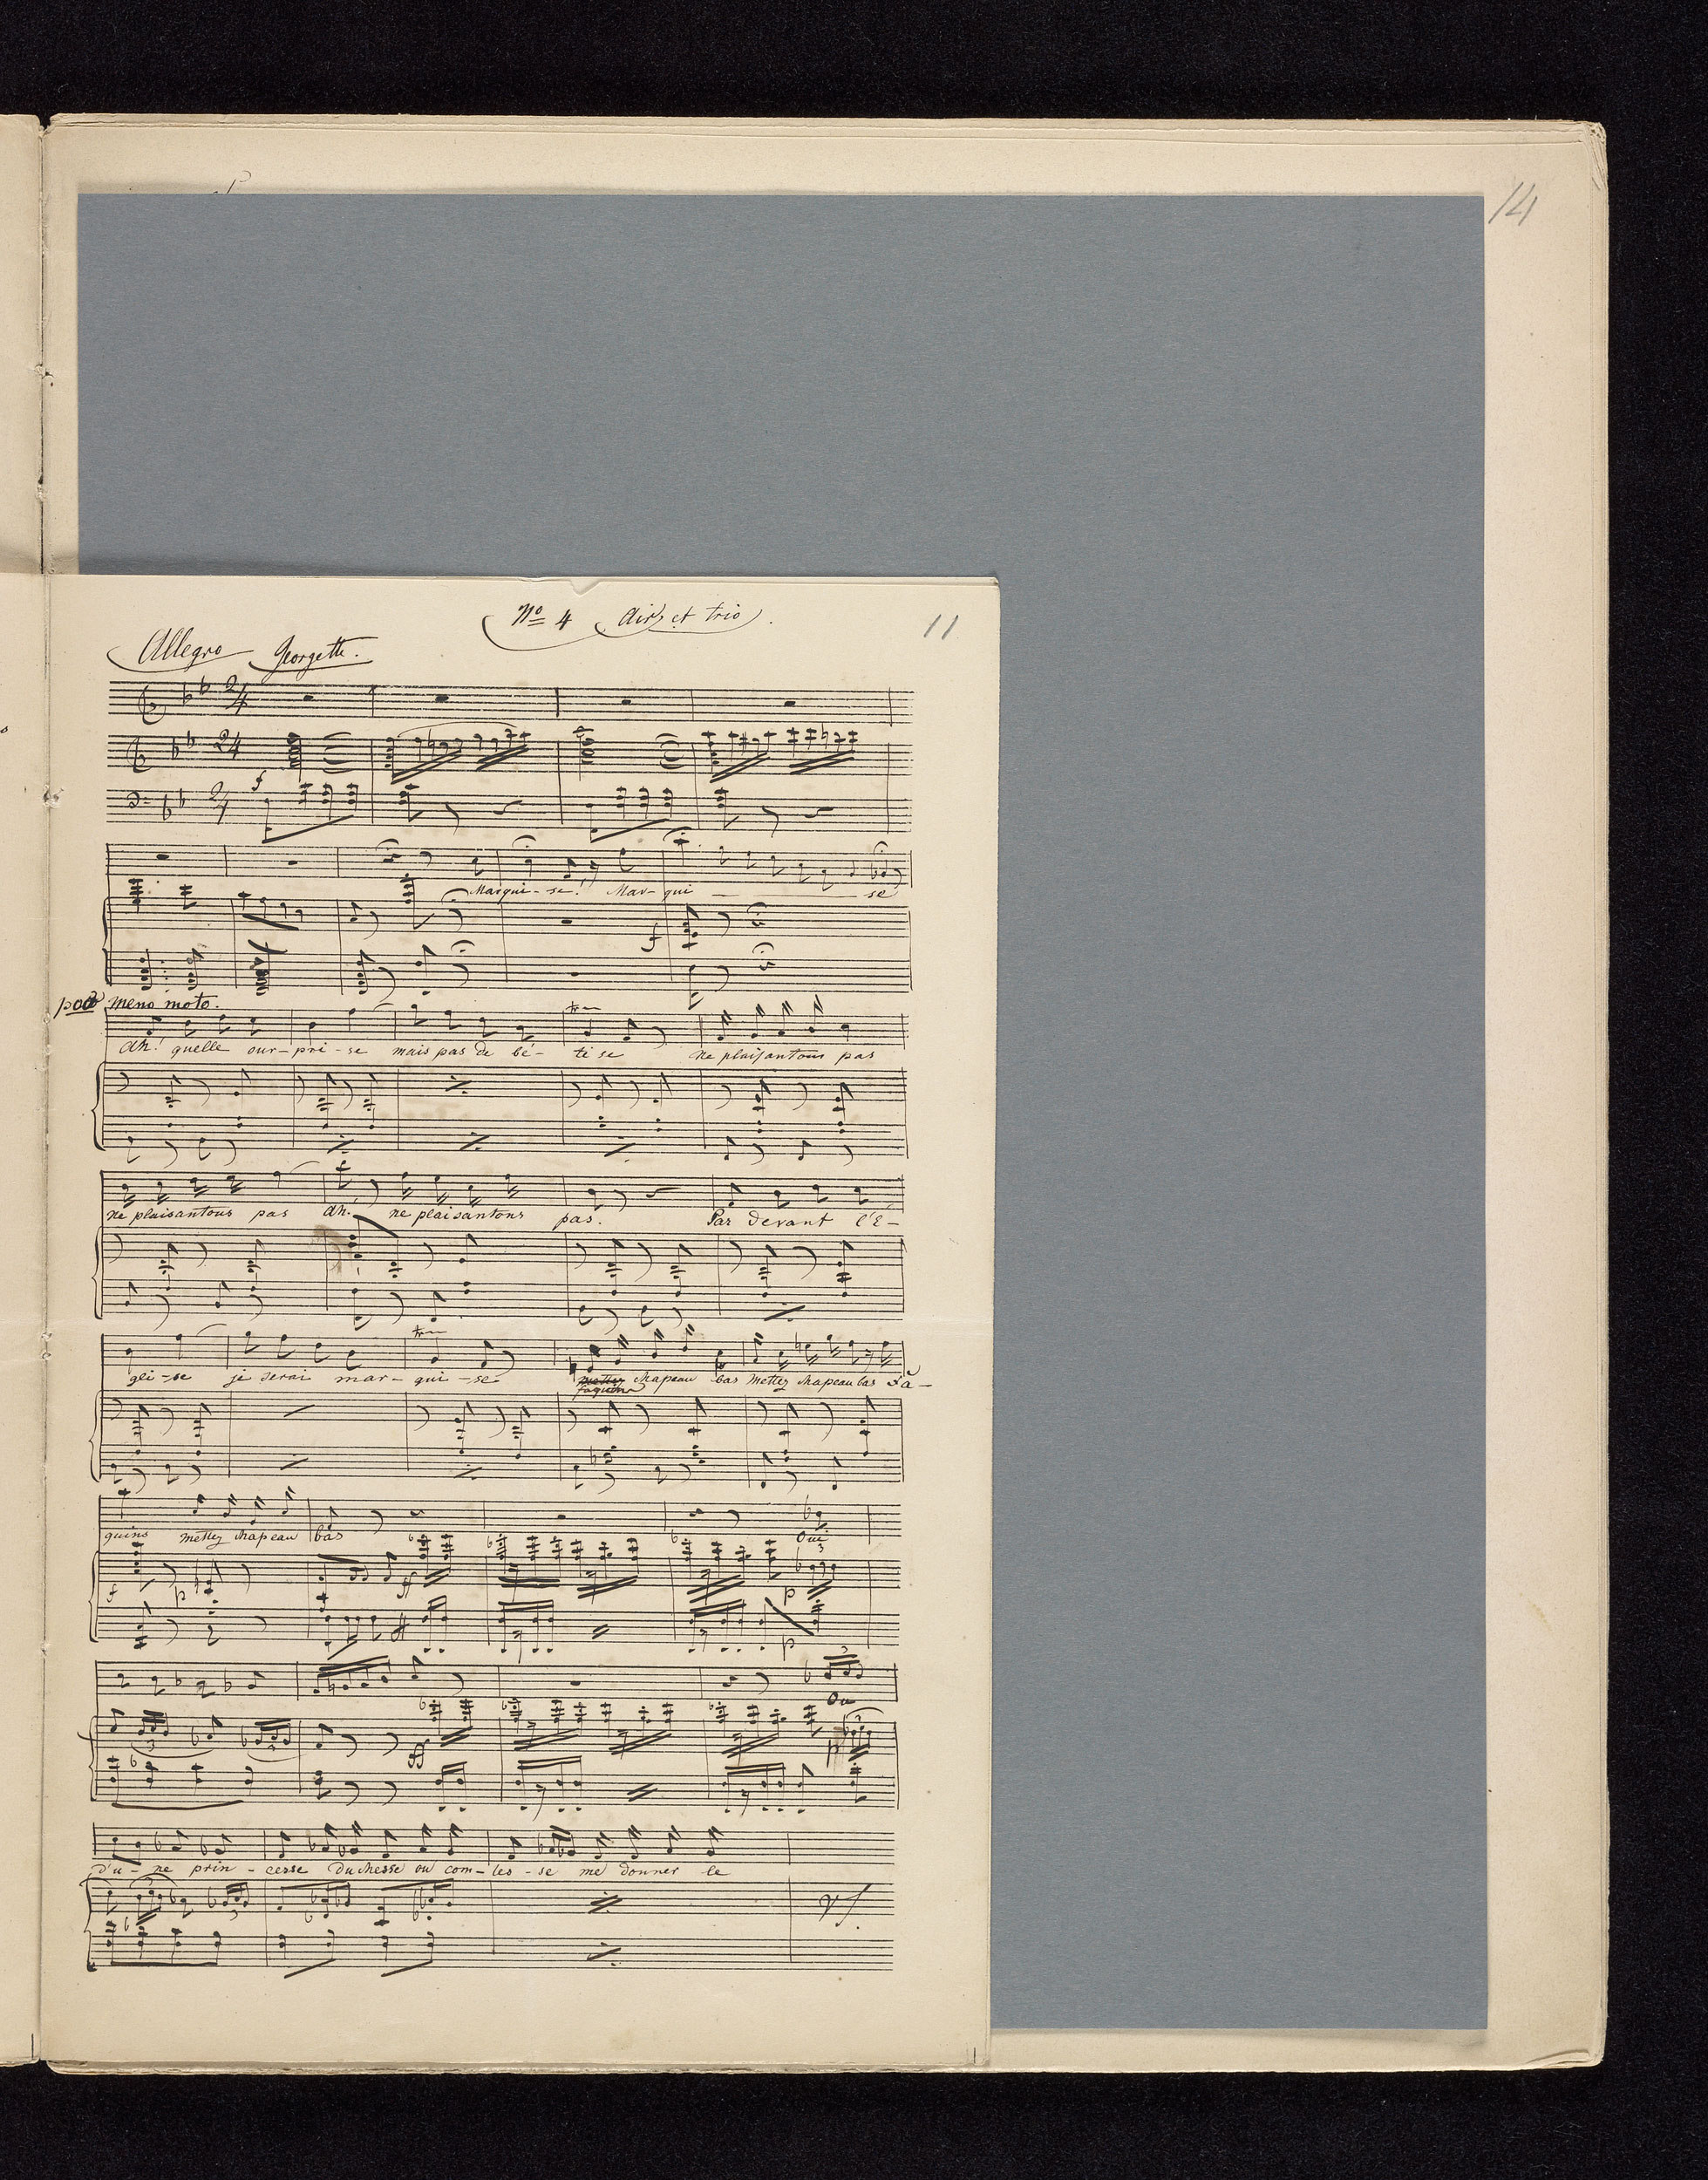 14
Nº 4 Air et trio.
11
Allegro Georgette.
2/4
24
f
2/4
Marqui-se! Mar-qui se
f
poco meno moto.
Ah! quelle sur-pri-se mais pas de bé-ti se ne plaisantons pas
ne plaisantons pas Ah! ne plaisantons pas. Par devant l'É-
gli-se je serai mar-qui-se mettez chapeau bas Mettez chapeau bas Fa-
faquins
quins mettez chapeau bas Oui
3
f p ff p
ff p
Ou
3
3 3 3
ff p
d'u-ne prin-cesse duchesse ou com-tes-se me donner le
3 3